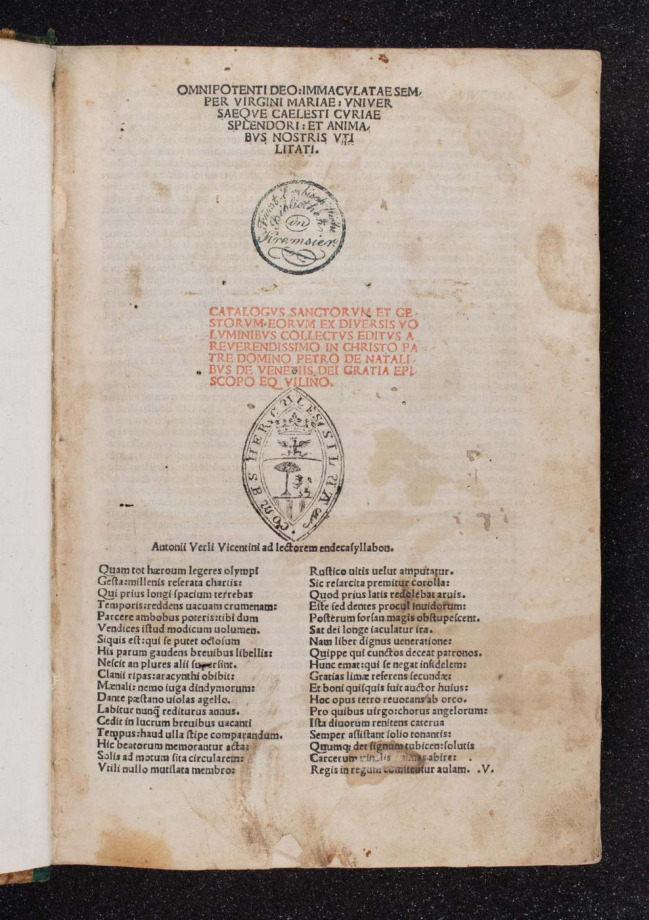 OMNIPOTENTI DEO:IMMACVLATAE SEM,
PER VIRGINI MARIAE: VNIVER
SAEQVE CAELESTI CVRIAE
SPLENDORI: ET ANIMA,
BVS NOSTRIS VTI
LITATI.
Bibliothek
in
Kremsier
CATALOGVS SANCTORVM ET GE
STORVM EORVM EX DIVERSIS VO
LVMINIBVS COLLECTVS EDITVS A
REVERENDISSIMO IN CHRISTO PA
TRE DOMINO PETRO DE NATALI
BVS DE VENETIIS DEI GRATIA EPI
SCOPO EQVILINO.
COMES HERCVLES SILVA
Antonii Verli Vicentini ad lectorem endecasyllabon.
Quam tot hæroum legeres olympi
Gesta: millenis reserata chartis:
Qui prius longi spacium terrebas
Temporis: reddens uacuam crumenam:
Parcere ambobus poteris: tibi dum
Vendices istud modicum uolumen.
Siquis est: qui se putet ociosum
His parum gaudens breuibus libellis:
Nescit an plures alii supersint.
Clanii ripas: aracynthi obibit:
Mænali: nemo iuga dindymorum:
Dante pæstano uiolas agello.
Labitur nunq̃ rediturus annus.
Cedit in lucrum breuibus uacanti
Tempus: haud ulla stipe comparandum.
Hic beatorum memorantur acta:
Solis ad motum sita circularem:
Vtili nullo mutilata membro:
Rustico uitis uelut amputatur.
Sic resarcita premitur corolla:
Quod prius latis redolebat aruis.
Este sed dentes procul inuidorum:
Posterum forsan magis obstupescent.
Sat dei longe iaculatur ira.
Nam liber dignus ueneratione:
Quippe qui cunctos deceat patronos.
Hunc emat: qui se negat infidelem:
Gratias limæ referens secundæ:
Et boni quisquis fuit auctor huius:
Hoc opus tetro reuocans ab orco.
Pro quibus uirgo: chorus angelorum:
Ista diuorum renitens caterua
Semper assistant solio tonantis:
Quumq; det signum tubicen: solutis
Carcerum abire:
Regis in regum comitentur aulam. .V.